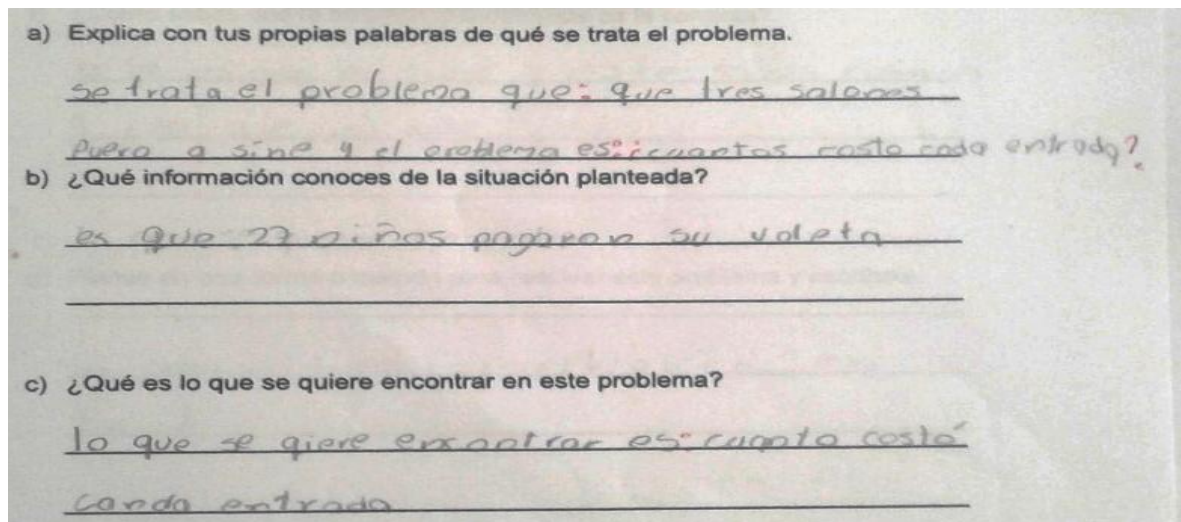 a) Explica con tus propias palabras de qué se trata el problema.
se trata el problema que: que tres salones
Puero a sine y el problema es: ¿cuantos costo cada entrada?
b) ¿Qué información conoces de la situación planteada?
es que 27 niños pagaron su voleta
c) ¿Qué es lo que se quiere encontrar en este problema?
lo que se qiere encontrar es: cuanto costó
canda entrada